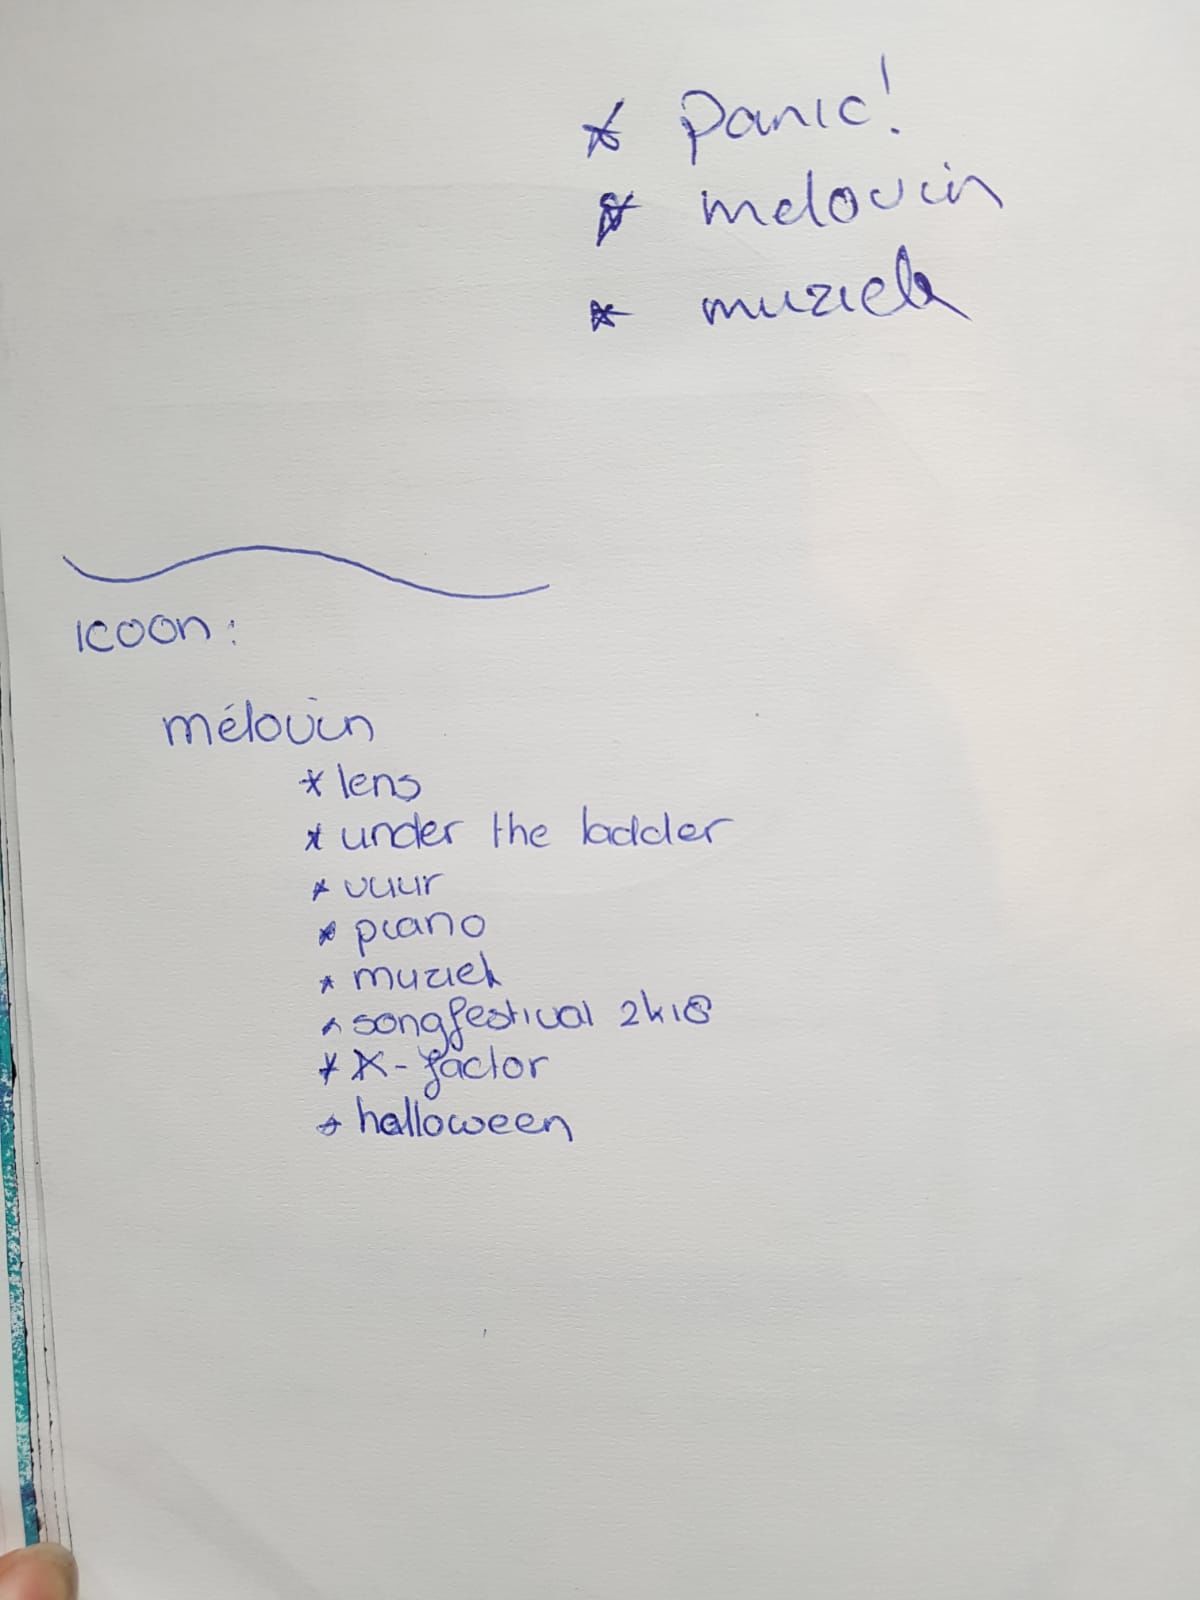 * Panic!
* melovin
* muziek
icoon:
mélovin
* lens
* under the ladder
* vuur
* piano
* muziek
* songfestival 2k18
* X-factor
* halloween